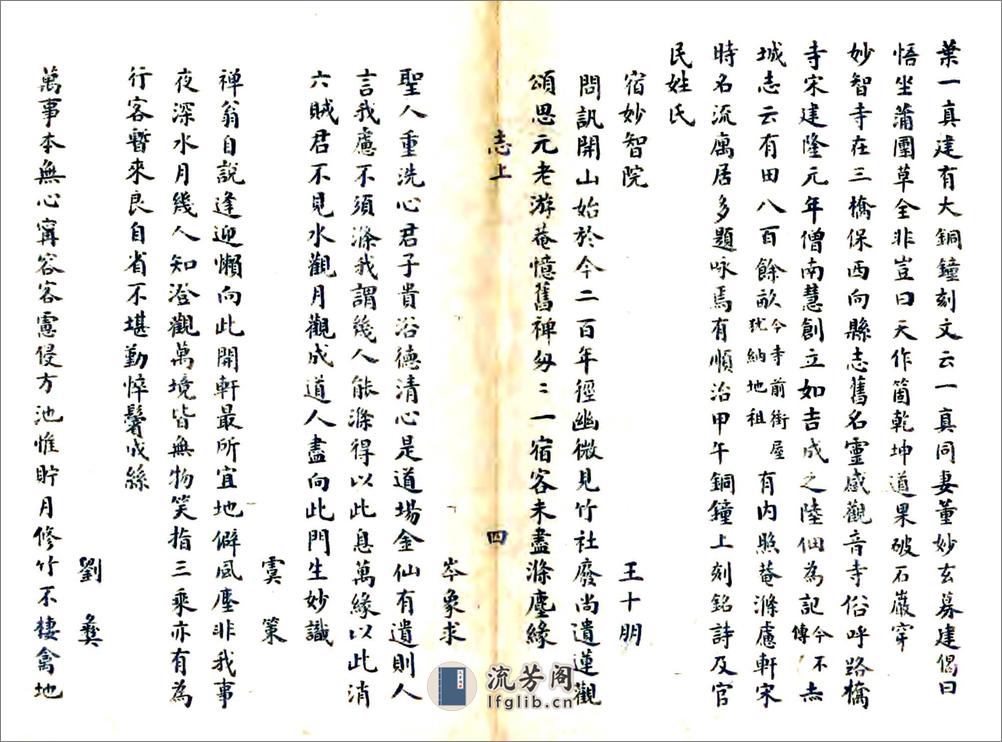 葉一真建有大銅鐘刻文云一真同妻董妙玄募建偈曰
悟坐蒲團草全非豈曰天作箇乾坤道果破石巖穿
妙智寺在三橋保西向縣志舊名靈感觀音寺俗呼路橋
寺宋建隆元年僧南慧創立如吉成之陸佃為記今不傳赤
城志云有田八百餘畝今寺前街屋猶納地租有内照菴滌慮軒宋
時名流寓居多題咏焉有順治甲午銅鐘上刻銘詩及官
民姓氏
宿妙智院
王十朋
問訊開山始於今二百年徑幽微見竹社廢尚遺蓮觀
頌思元老游菴憶舊禅匆匆一宿客未盡滌塵緣
志上
四
岑象求
聖人重洗心君子貴浴德清心是道場金仙有遺則人
言我慮不須滌我謂幾人能滌得以此息萬緣以此消
六賊君不見水觀月觀成道人盡向此門生妙識
虞策
禅翁自說逢迎懶向此開軒最所宜地僻風塵非我事
夜深水月幾人知澄觀萬境皆無物笑指三乘亦有為
行客暫來良自省不堪勤悴鬢成絲
劉彝
萬事本無心寗容客慮侵方池惟貯月修竹不棲禽地
流芳阁
lfglib.cn